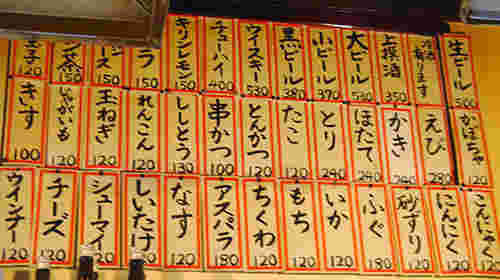 生ビール 500
冷酒有ります
上撰酒 350
大ビール
小ビール 370
黒ビール 380
ウイスキー
チューハイ 400
キリンレモン 150
ラ 150
ース 150
ン茶 150
玉子 120
かぼちゃ 120
えび
かき
ほたて 240
とり
たこ 120
とんかつ 120
串かつ 100
ししとう
れんこん 120
玉ねぎ 120
じゃがいも 120
きす 100
こんにゃく 120
にんにく 120
砂ずり 120
ふぐ
いか
もち 120
ちくわ 120
アスパラ 180
なす 120
しいたけ 120
シューマイ 120
チーズ 120
ウインナー 120